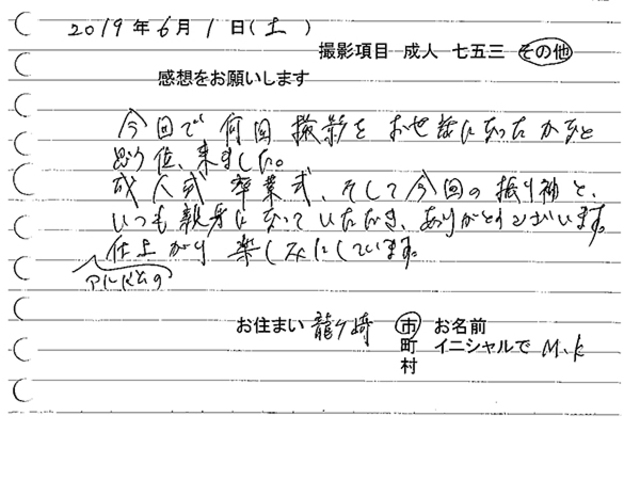 2019年6月1日(土)
撮影項目 成人 七五三 その他
感想をお願いします
今回で何回撮影をお世話になったかなと
思う位、来ました。
成人式 卒業式、そして今回の振り袖と、
いつも親身になっていただき、ありがとうございます。
仕上がり楽しみにしています。
アルバムの
お住まい 龍ケ崎 市 お名前
町 イニシャルで M.K
村